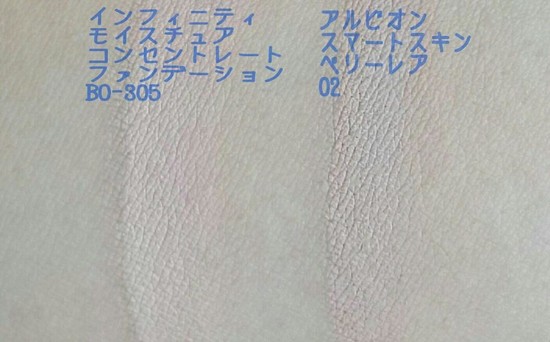 インフィニティ
モイスチュア
コンセントレート
ファンデーション
BO-305
アルビオン
スマートスキン
ベリーレア
02